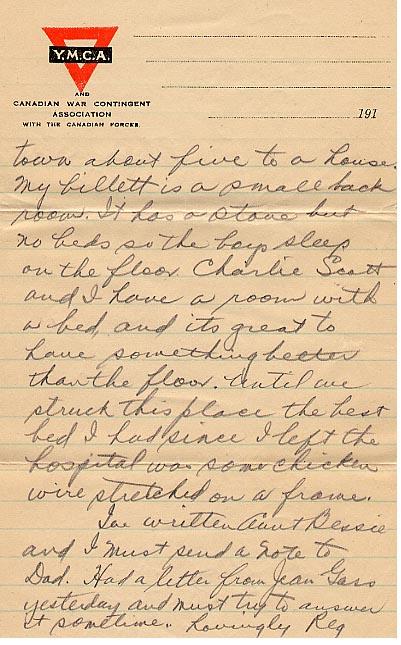 Y.M.C.A.
AND
CANADIAN WAR CONTINGENT
ASSOCIATION
WITH THE CANADIAN FORCES.
191
town about five to a house.
My billett is a small back
room. It has a stove but
no beds so the boys sleep
on the floor. Charlie Scott
and I have a room with
a bed, and its great to
have something better
than the floor. Until we
struck this place the best
bed I had since I left the
hospital was some chicken
wire stretched on a frame.
I've written Aunt Bessie
and I must send a note to
Dad. Had a letter from Jean Gass
yesterday and must try to answer
it sometime. Lovingly Reg